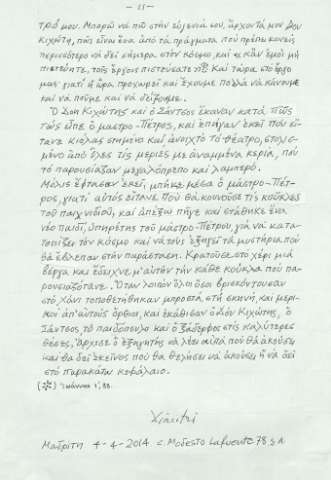 - 11 -
τρό μου. Μπορῶ νὰ πῶ στὴν εὐγενιά σου, ἄρχοντά μου Δὸν
Κιχώτη, πὼς εἶναι ἕνα ἀπὸ τὰ πράγματα ποὺ πρέπει κανεὶς
περισσότερο νὰ δεῖ σήμερα στὸν κόσμο, καὶ « κἂν ἐμοὶ μὴ
πιστεύητε, τοῖς ἔργοις πιστεύσατε » (*) Καὶ τώρα στὸ ἔργο
μας γιατὶ ἡ ὥρα προχωρεῖ καὶ ἔχουμε πολλὰ νὰ κάνουμε
καὶ νὰ ποῦμε καὶ νὰ δείξουμε.
Ὁ Δὸν Κιχώτης καὶ ὁ Σάντσος ἔκαναν κατὰ πῶς
τοὺς εἶπε ὁ μαστρο-Πέτρος, καὶ ἐπῆγαν ἐκεῖ ποὺ εἴ-
τανε κιόλας στημένο καὶ ἀνοιχτὸ τὸ θέατρο, στολισ-
μένο ἀπὸ ὅλες τὶς μεριὲς μὲ ἀναμμένα κερία, ποὺ
τὸ παρουσίαζαν μεγαλόπρεπο καὶ λαμπερό.
Μόλις ἔφτασαν ἐκεῖ, μπῆκε μέσα ὁ μάστρο-Πέτ-
ρος, γιατὶ αὐτὸς εἴτανε ποὺ θὰ κουνοῦσε τὶς κοῦκλες
τοῦ παιχνιδιοῦ, καὶ ἀπέξω πῆγε καὶ στάθηκε ἕνα
νέο παιδί, ὑπηρέτης τοῦ μάστρο-Πέτρου, γιὰ νὰ κατα-
τοπίζει τὸν κόσμο καὶ νὰ τοὺς ἐξηγεῖ τὰ μυστήρια ποὺ
θὰ ἔβλεπαν στὴν παράσταση. Κρατοῦσε στὸ χέρι μιὰ
βέργα καὶ ἔδειχνε μ' αὐτὴν τὴν κάθε κούκλα ποὺ πα-
ρουσιαζότανε. Ὅταν λοιπὸν ὅλοι ὅσοι βρισκόντουσαν
στὸ χάνι τοποθετήθηκαν μπροστὰ στὴ σκηνή, καὶ μερι-
κοὶ ἀπ' αὐτοὺς ὄρθιοι, καὶ ἐκάθισαν ὁ Δὸν Κιχώτης, ὁ
Σάντσος, τὸ παιδόπουλο καὶ ὁ ξάδερφος στὶς καλύτερες
θέσεις, ἄρχισε ὁ ἐξηγητὴς νὰ λέει αὐτὰ ποὺ θὰ ἀκούσει
καὶ θὰ δεῖ ἐκεῖνος ποὺ θὰ θελήσει νὰ ἀκούσει ἢ νὰ δεῖ
στὸ παρακάτω κεφάλαιο.
(*) Ἰωάννου ι', 38.
Μαδρίτη 4-4-2014 c. Modesto Lafuente 78 5 A